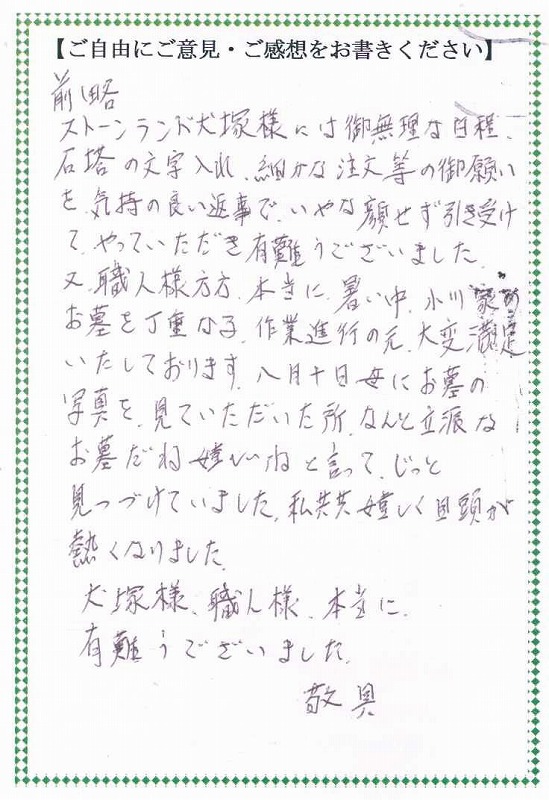 【ご自由にご意見・ご感想をお書きください】
前略
ストーンランド犬塚様には御無理な日程、
石塔の文字入れ、細かな注文等の御願い
を、気持の良い返事で、いやな顔せず引き受け
て、やっていただき有難うございました。
又、職人様方方、本当に、暑い中、小川家の
お墓を丁重なる、作業進行の元、大変満足
いたしております。八月十日母にお墓の
写真を、見ていただいた所、なんと立派な
お墓だね嬉しいねと言って、じっと
見つづけていました。私共共嬉しく目頭が
熱くなりました。
犬塚様、職人様、本当に、
有難うございました。
敬具